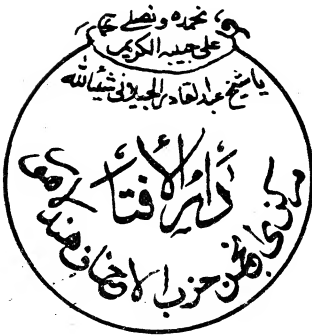 نحمدہ ونصلے
علی حبیبہ الکریم
یا شیخ عبدالقادر الجیلانی شیئاللہ
دار الافتا
مرکزی انجمن حزب الاحناف ہند لاہور